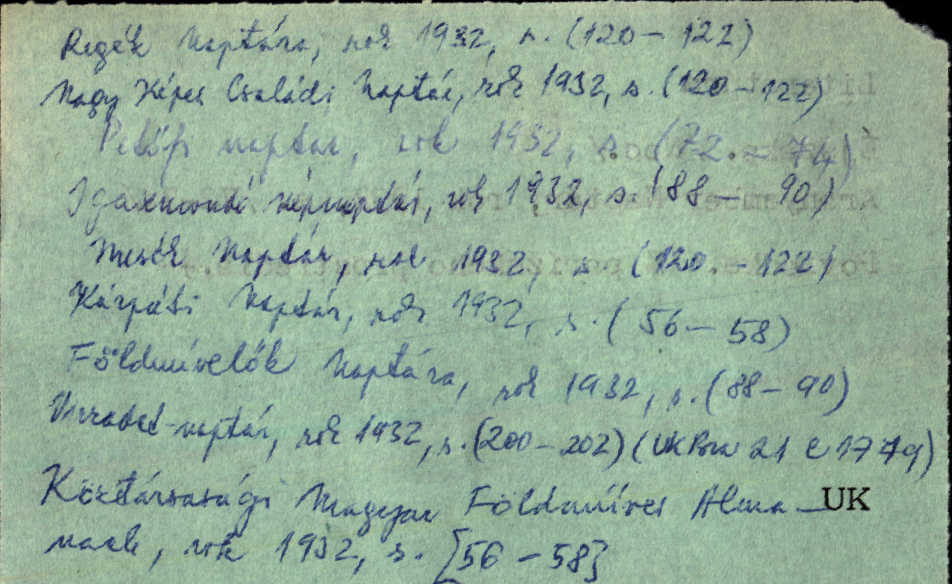 Regék Naptára, rok 1932, s. (120-122)
Nagy Képes Családi Naptár, rok 1932, s. (120-122)
Petőfi naptár, rok 1932, s. (72-74)
Igazmondó képnaptár, rok 1932, s. (88-90)
Mesék Naptár, rok 1932, s. (120-122)
Kárpáti Naptár, rok 1932, s. (56-58)
Földmívelők Naptára, rok 1932, s. (88-90)
Virradat-naptár, rok 1932, s. (200-202) (UK 21 C 1779)
Köztársasági Magyar Földmíves Alma- UK
nach, rok 1932, s. [56-58]